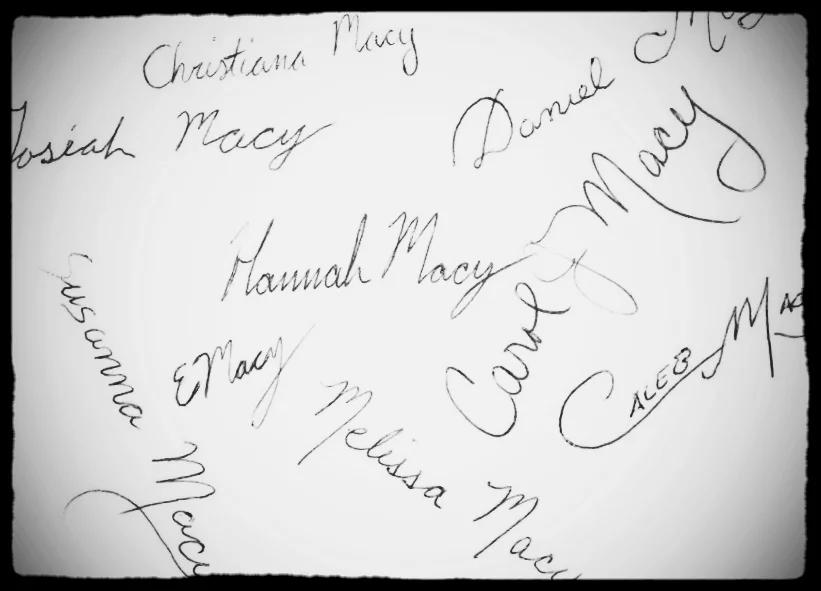 Christiana Macy
Daniel
Josiah Macy
Carol J Macy
Hannah Macy
Susanna Macy
E Macy
CALEB MAC
Melissa Macy